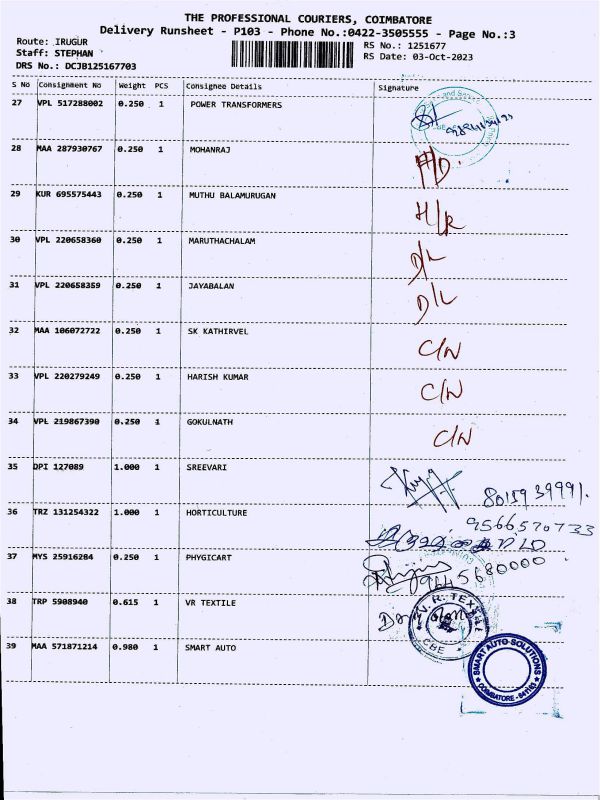 THE PROFESSIONAL COURIERS, COIMBATORE
Delivery Runsheet - P103 - Phone No.:0422-3505555 - Page No.:3
Route: IRUGUR
RS No.: 1251677
Staff: STEPHAN
RS Date: 03-Oct-2023
DRS No.: DCJB125167703
S No Consignment No Weight PCS Consignee Details Signature
27 VPL 517288002 0.250 1 POWER TRANSFORMERS
28 MAA 287930767 0.250 1 MOHANRAJ H/D.
29 KUR 695575443 0.250 1 MUTHU BALAMURUGAN H/R
30 VPL 220658360 0.250 1 MARUTHACHALAM D/L
31 VPL 220658359 0.250 1 JAYABALAN D/L
32 MAA 106072722 0.250 1 SK KATHIRVEL C/N
33 VPL 220279249 0.250 1 HARISH KUMAR C/N
34 VPL 219867390 0.250 1 GOKULNATH C/N
35 DPI 127089 1.000 1 SREEVARI
36 TRZ 131254322 1.000 1 HORTICULTURE 9566570733
37 MYS 25916284 0.250 1 PHYGICART
38 TRP 5908940 0.615 1 VR TEXTILE
V.R. TEXTILE
CBE
39 MAA 571871214 0.980 1 SMART AUTO
SMART AUTO SOLUTIONS